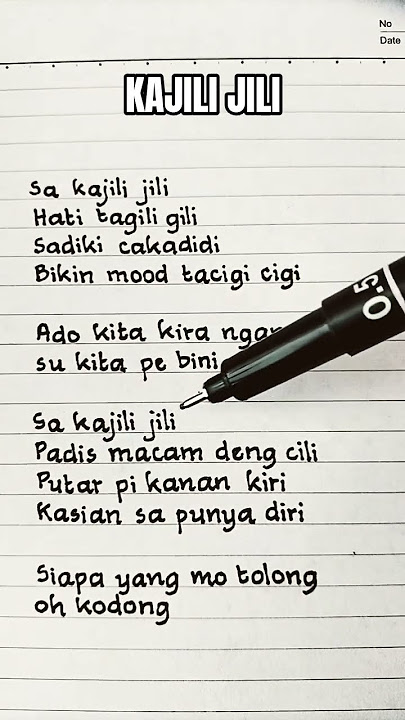 No
Date
KAJILI JILI
Sa kajili jili
Hati tagili gili
Sadiki cakadidi
Bikin mood tacigi cigi
Ado kita kira
su kita pe bini
Sa kajili jili
Padis macam deng cili
Putar pi kanan kiri
Kasian sa punya diri
Siapa yang mo tolong
oh kodong
0.5